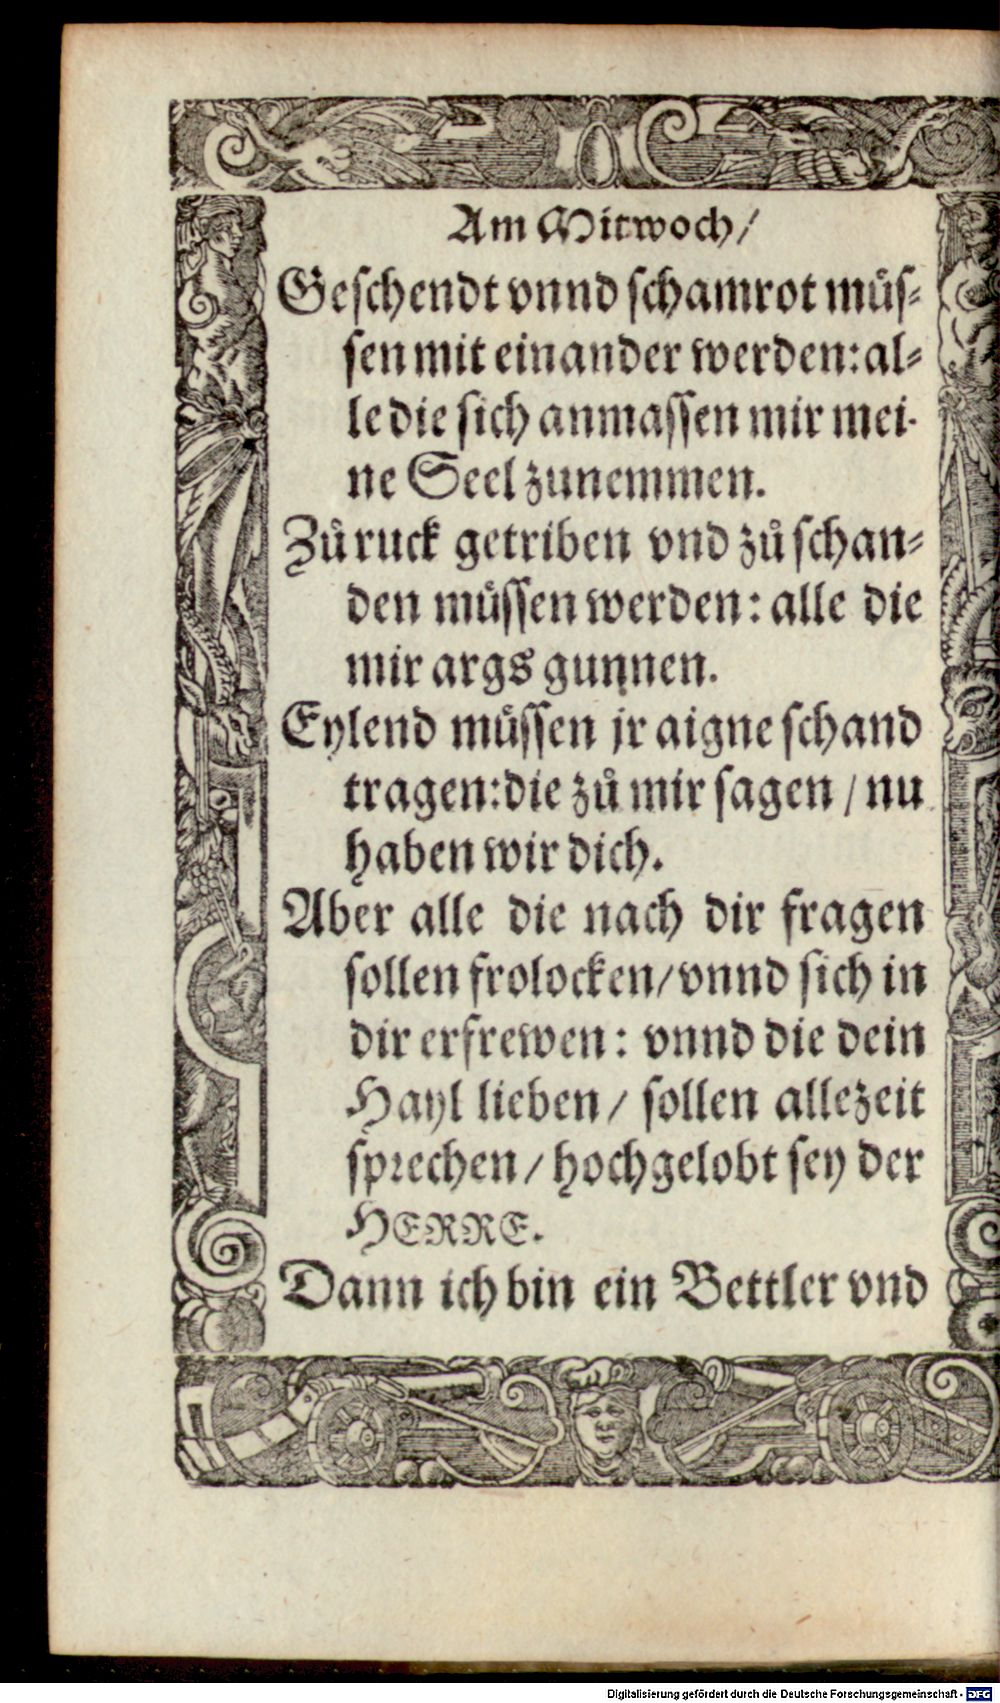 Am Mitwoch/
Geschendt vnnd schamrot müs⸗
sen mit einander werden: al⸗
le die sich anmassen mir mei-
ne Seel zunemmen.
Zů ruck getriben vnd zů schan⸗
den müssen werden: alle die
mir args gunnen.
Eylend müssen jr aigne schand
tragen: die zů mir sagen / nu
haben wir dich.
Aber alle die nach dir fragen
sollen frolocken/ vnnd sich in
dir erfrewen: vnnd die dein
Hayl lieben/ sollen allezeit
sprechen/ hochgelobt sey der
HERRE.
Dann ich bin ein Bettler vnd
Digitalisierung gefördert durch die Deutsche Forschungsgemeinschaft - DFG